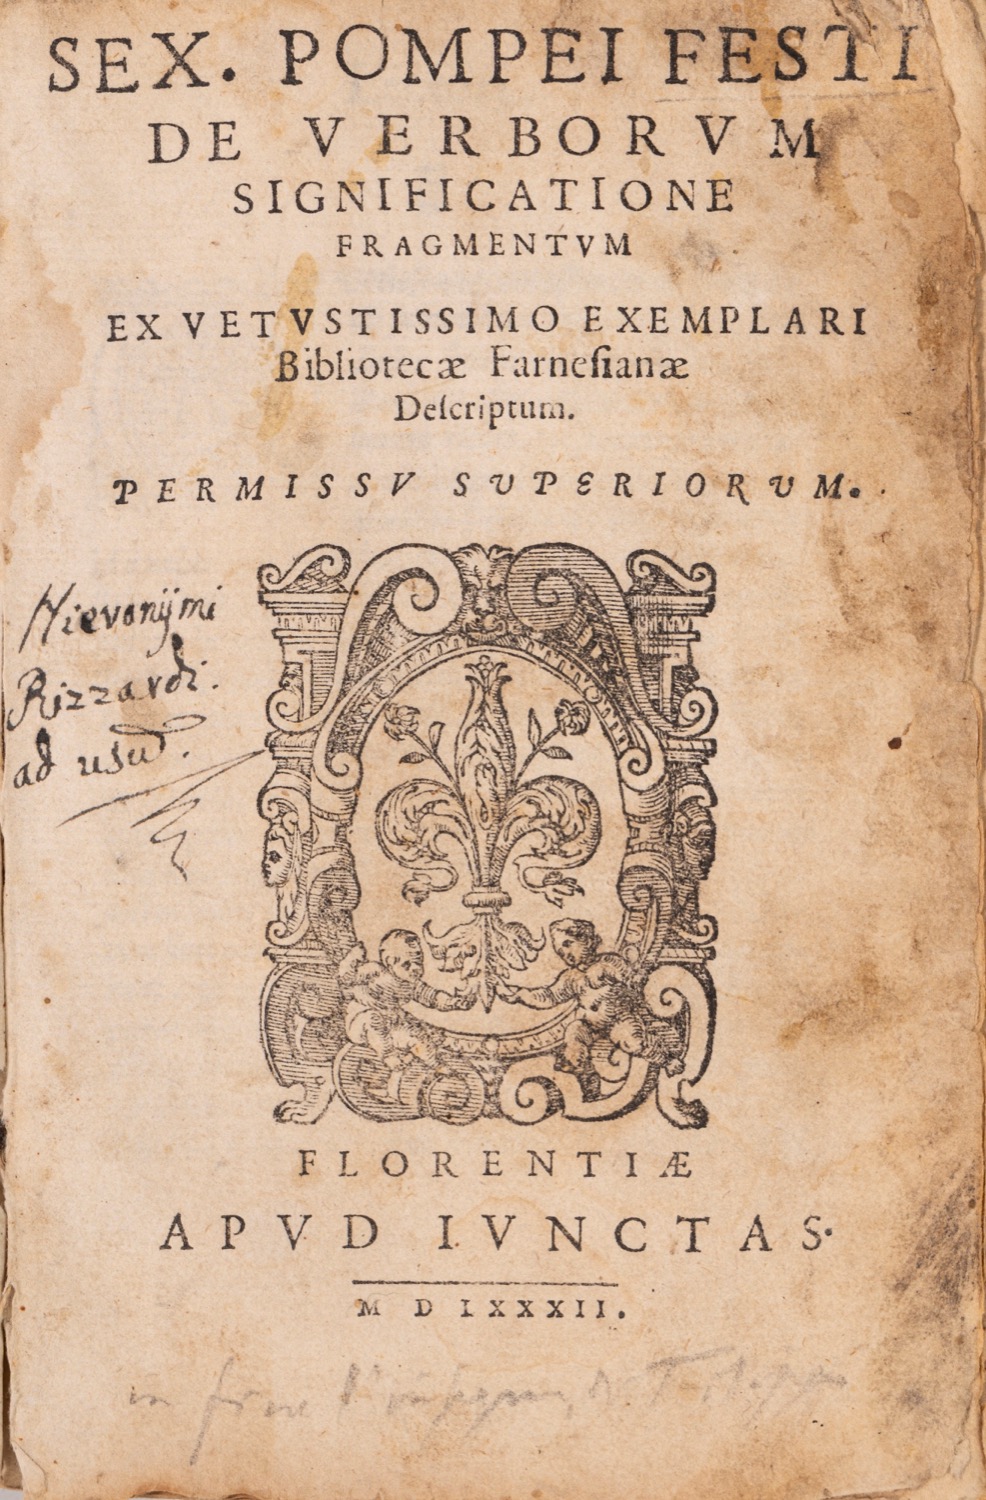 SEX. POMPEI FESTI
DE VERBORVM
SIGNIFICATIONE
FRAGMENTVM
EX VETVSTISSIMO EXEMPLARI
Bibliotecæ Farneſianæ
Deſcriptum.
PERMISSV SVPERIORVM.
Hieronÿmi
Rizzardi.
ad usū.
FLORENTIÆ
APVD IVNCTAS.
M D LXXXII.
in fine l'